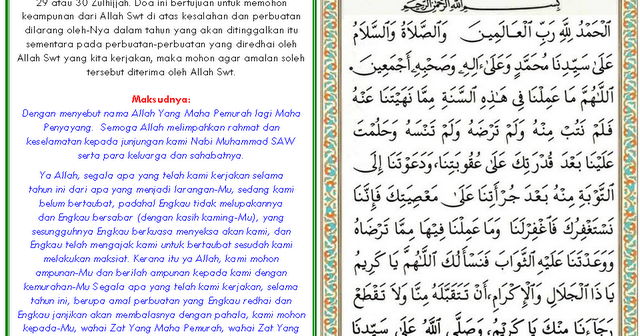 29 atau 30 Zulhijjah. Doa ini bertujuan untuk memohon
keampunan dari Allah Swt di atas kesalahan dan perbuatan
dilarang oleh-Nya dalam tahun yang akan ditinggalkan itu
sementara pada perbuatan-perbuatan yang diredhai oleh
Allah Swt yang kita kerjakan, maka mohon agar amalan soleh
tersebut diterima oleh Allah Swt.
Maksudnya:
Dengan menyebut nama Allah Yang Maha Pemurah lagi Maha
Penyayang. Semoga Allah melimpahkan rahmat dan
keselamatan kepada junjungan kami Nabi Muhammad SAW
serta para keluarga dan sahabatnya.
Ya Allah, segala apa yang telah kami kerjakan selama
tahun ini dari apa yang menjadi larangan-Mu, sedang kami
belum bertaubat, padahal Engkau tidak melupakannya
dan Engkau bersabar (dengan kasih kaming-Mu), yang
sesungguhnya Engkau berkuasa menyeksa akan kami, dan
Engkau telah mengajak kami untuk bertaubat sesudah kami
melakukan maksiat. Kerana itu ya Allah, kami mohon
ampunan-Mu dan berilah ampunan kepada kami dengan
kemurahan-Mu Segala apa yang telah kami kerjakan, selama
tahun ini, berupa amal perbuatan yang Engkau redhai dan
Engkau janjikan akan membalasnya dengan pahala, kami mohon
kepada-Mu, wahai Zat Yang Maha Pemurah, wahai Zat Yang
بِسْمِ اللَّهِ الرَّحْمَنِ الرَّحِيمِ
اَلْحَمْدُ لِلَّهِ رَبِّ الْعَالَمِينَ وَالصَّلَاةُ وَالسَّلَامُ
عَلَى سَيِّدِنَا مُحَمَّدٍ وَعَلَى اٰلِهِ وَصَحْبِهِ أَجْمَعِينَ.
اَللَّهُمَّ مَا عَمِلْنَا فِي هَذِهِ السَّنَةِ مِمَّا نَهَيْتَنَا عَنْهُ
فَلَمْ نَتُبْ مِنْهُ وَلَمْ تَرْضَهُ وَلَمْ تَنْسَهُ وَحَلُمْتَ
عَلَيْنَا بَعْدَ قُدْرَتِكَ عَلَى عُقُوبَتِنَا، وَدَعَوْتَنَا إِلَى
التَّوْبَةِ مِنْهُ بَعْدَ جُرْأَتِنَا عَلَى مَعْصِيَتِكَ فَإِنَّنَا
نَسْتَغْفِرُكَ فَاغْفِرْلَنَا وَمَا عَمِلْنَا فِيهَا مِمَّا تَرْضَاهُ
وَوَعَدْتَنَا عَلَيْهِ الثَّوَابَ فَنَسْأَلُكَ اللَّهُمَّ يَا كَرِيمُ
يَا ذَا الْجَلَالِ وَالْإِكْرَامِ، أَنْ تَتَقَبَّلَهُ مِنَّا وَلَا تَقْطَعْ
رَجَاءَنَا مِنْكَ يَا كَرِيمُ، وَصَلَّى اللَّهُ عَلَى سَيِّدِنَا